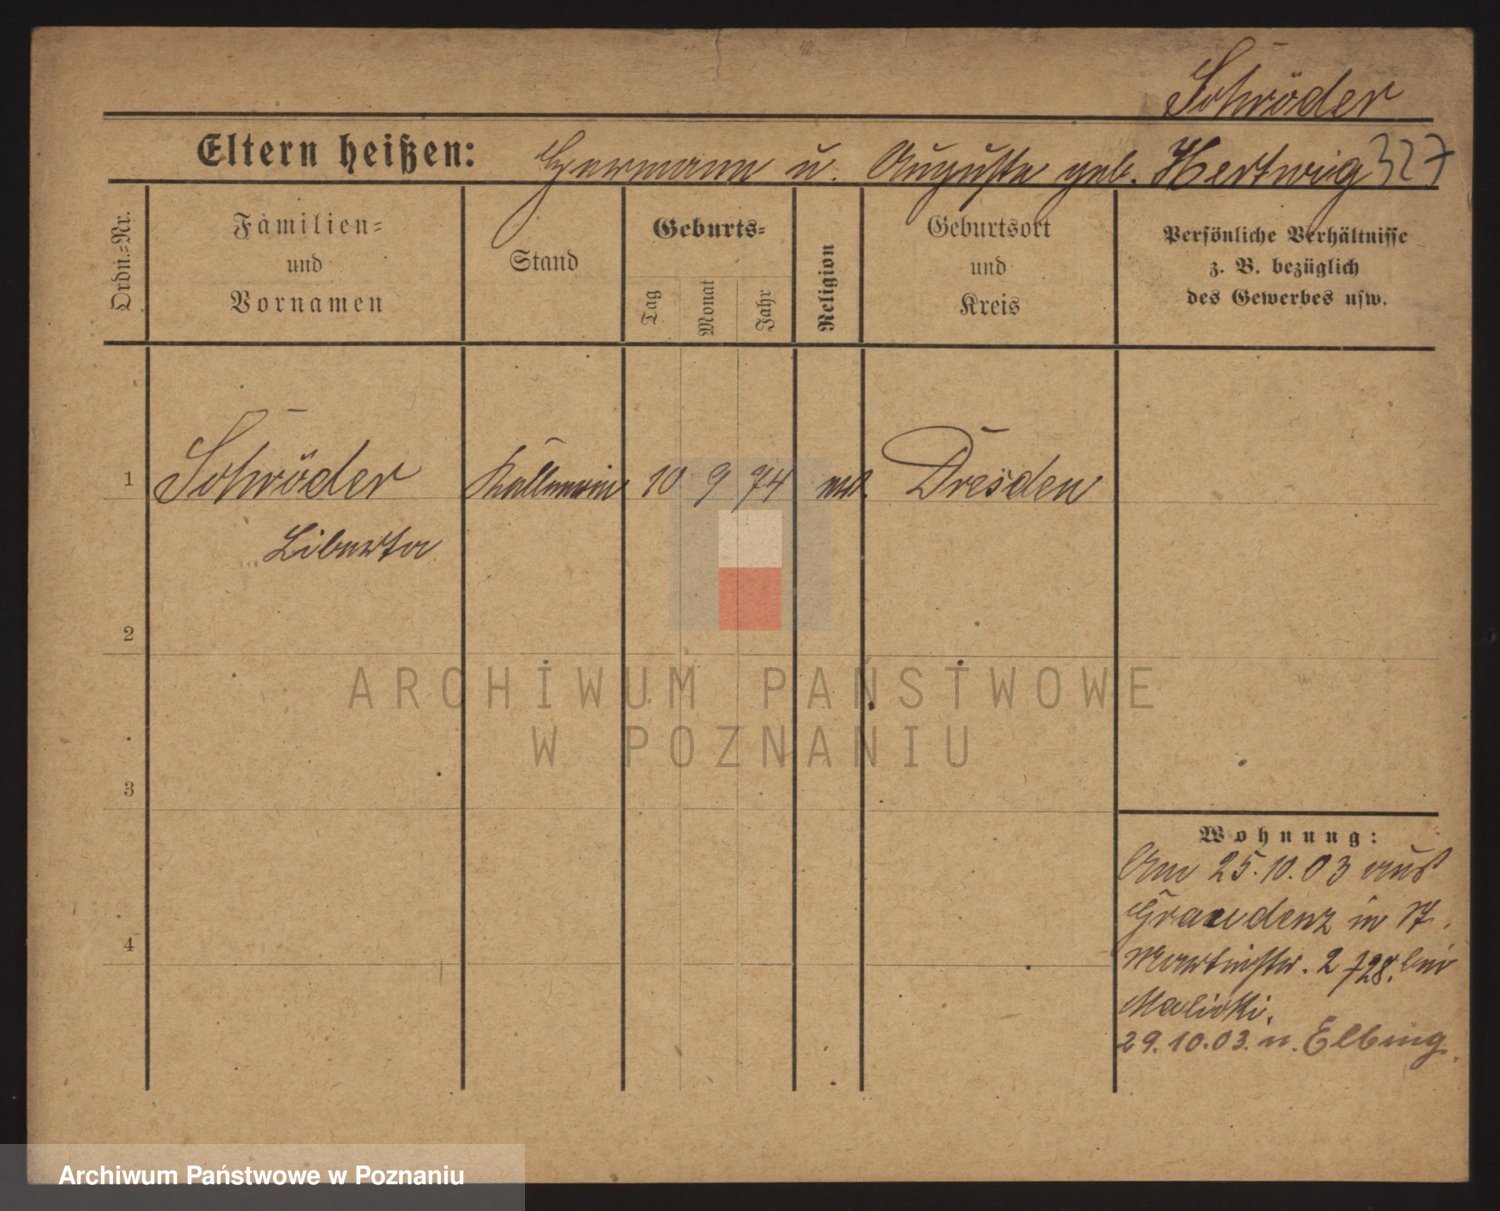 Schröder
Eltern heißen: Hermann u. Auguste geb. Hertwig 327
Ordn.=Nr.
Familien=
und
Vornamen
Stand
Geburts=
Tag
Monat
Jahr
Religion
Geburtsort
und
Kreis
Persönliche Verhältnisse
z. B. bezüglich
des Gewerbes usw.
1 Schröder Kellnerin 10 9 74 Dresden
Liberta
2
ARCHIWUM PAŃSTWOWE
W POZNANIU
3
Wohnung:
Am 25.10.03 aus
Graudenz in
Martinstr. 2 bei
29.10.03. n. Elbing.
4
Archiwum Państwowe w Poznaniu